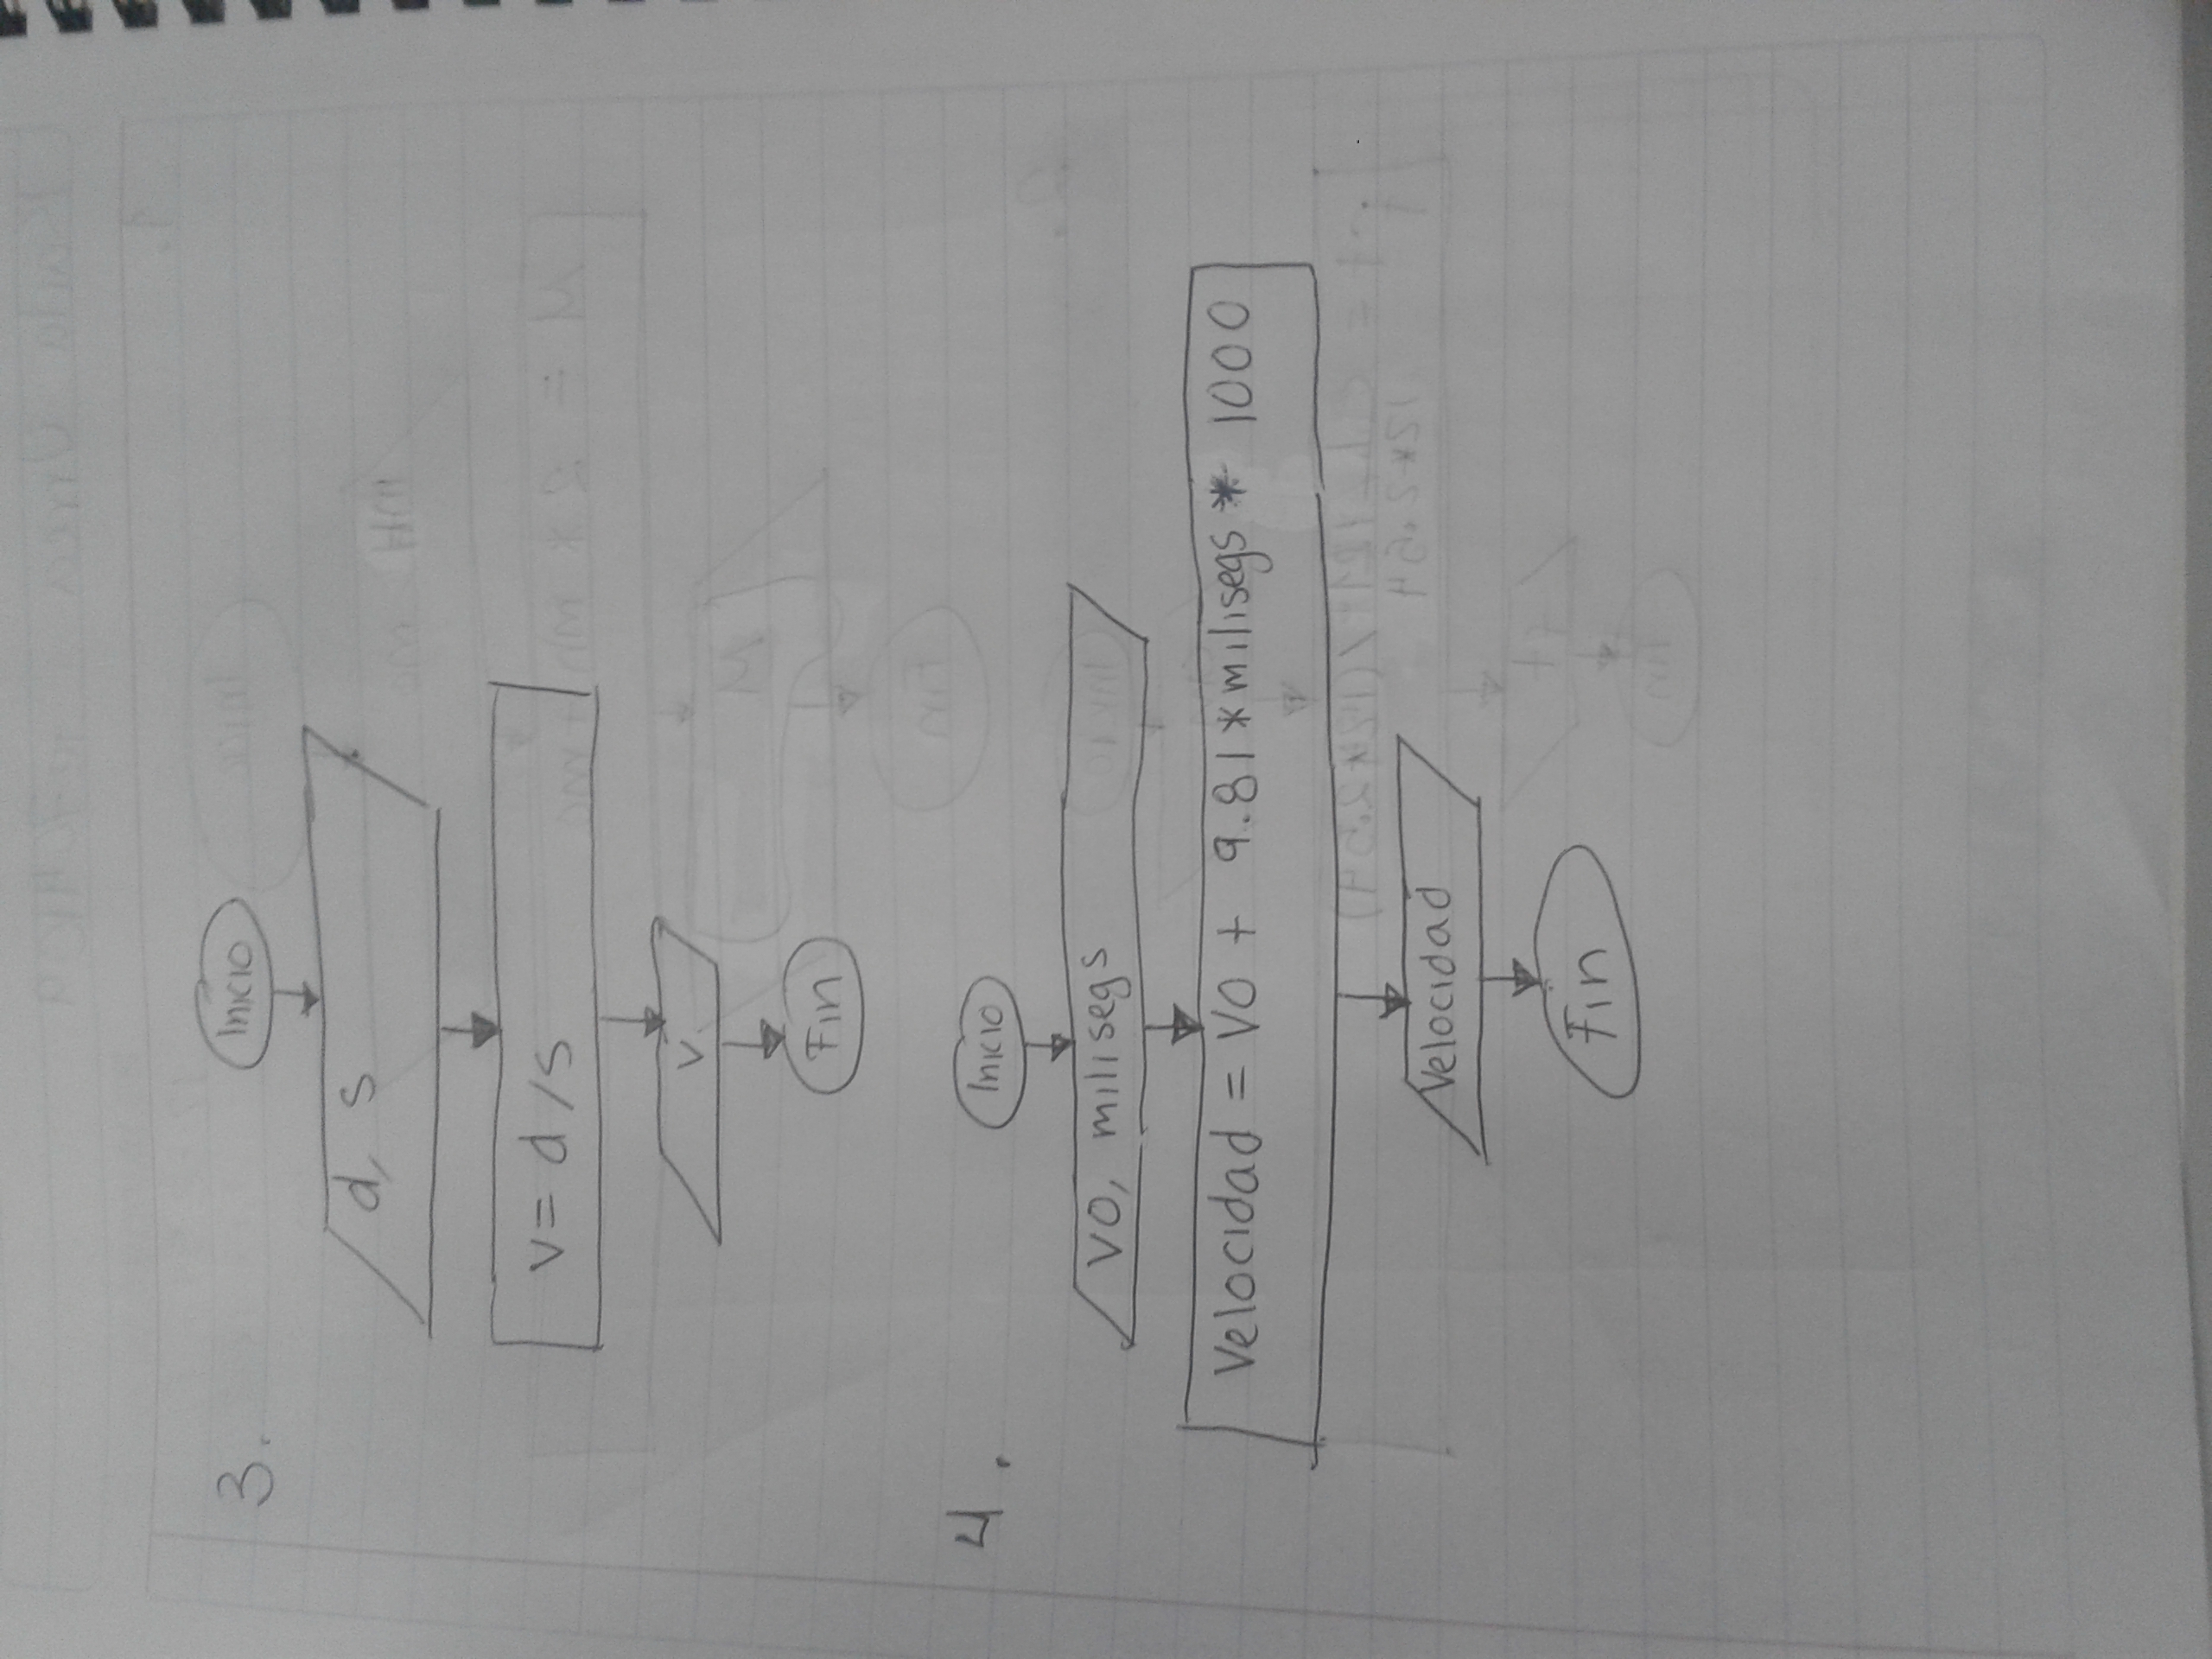 3.
Inicio
d, s
v = d / s
v
Fin
4.
Inicio
VO, milisegs
Velocidad = VO + 9.81 * milisegs * 1000
Velocidad
Fin